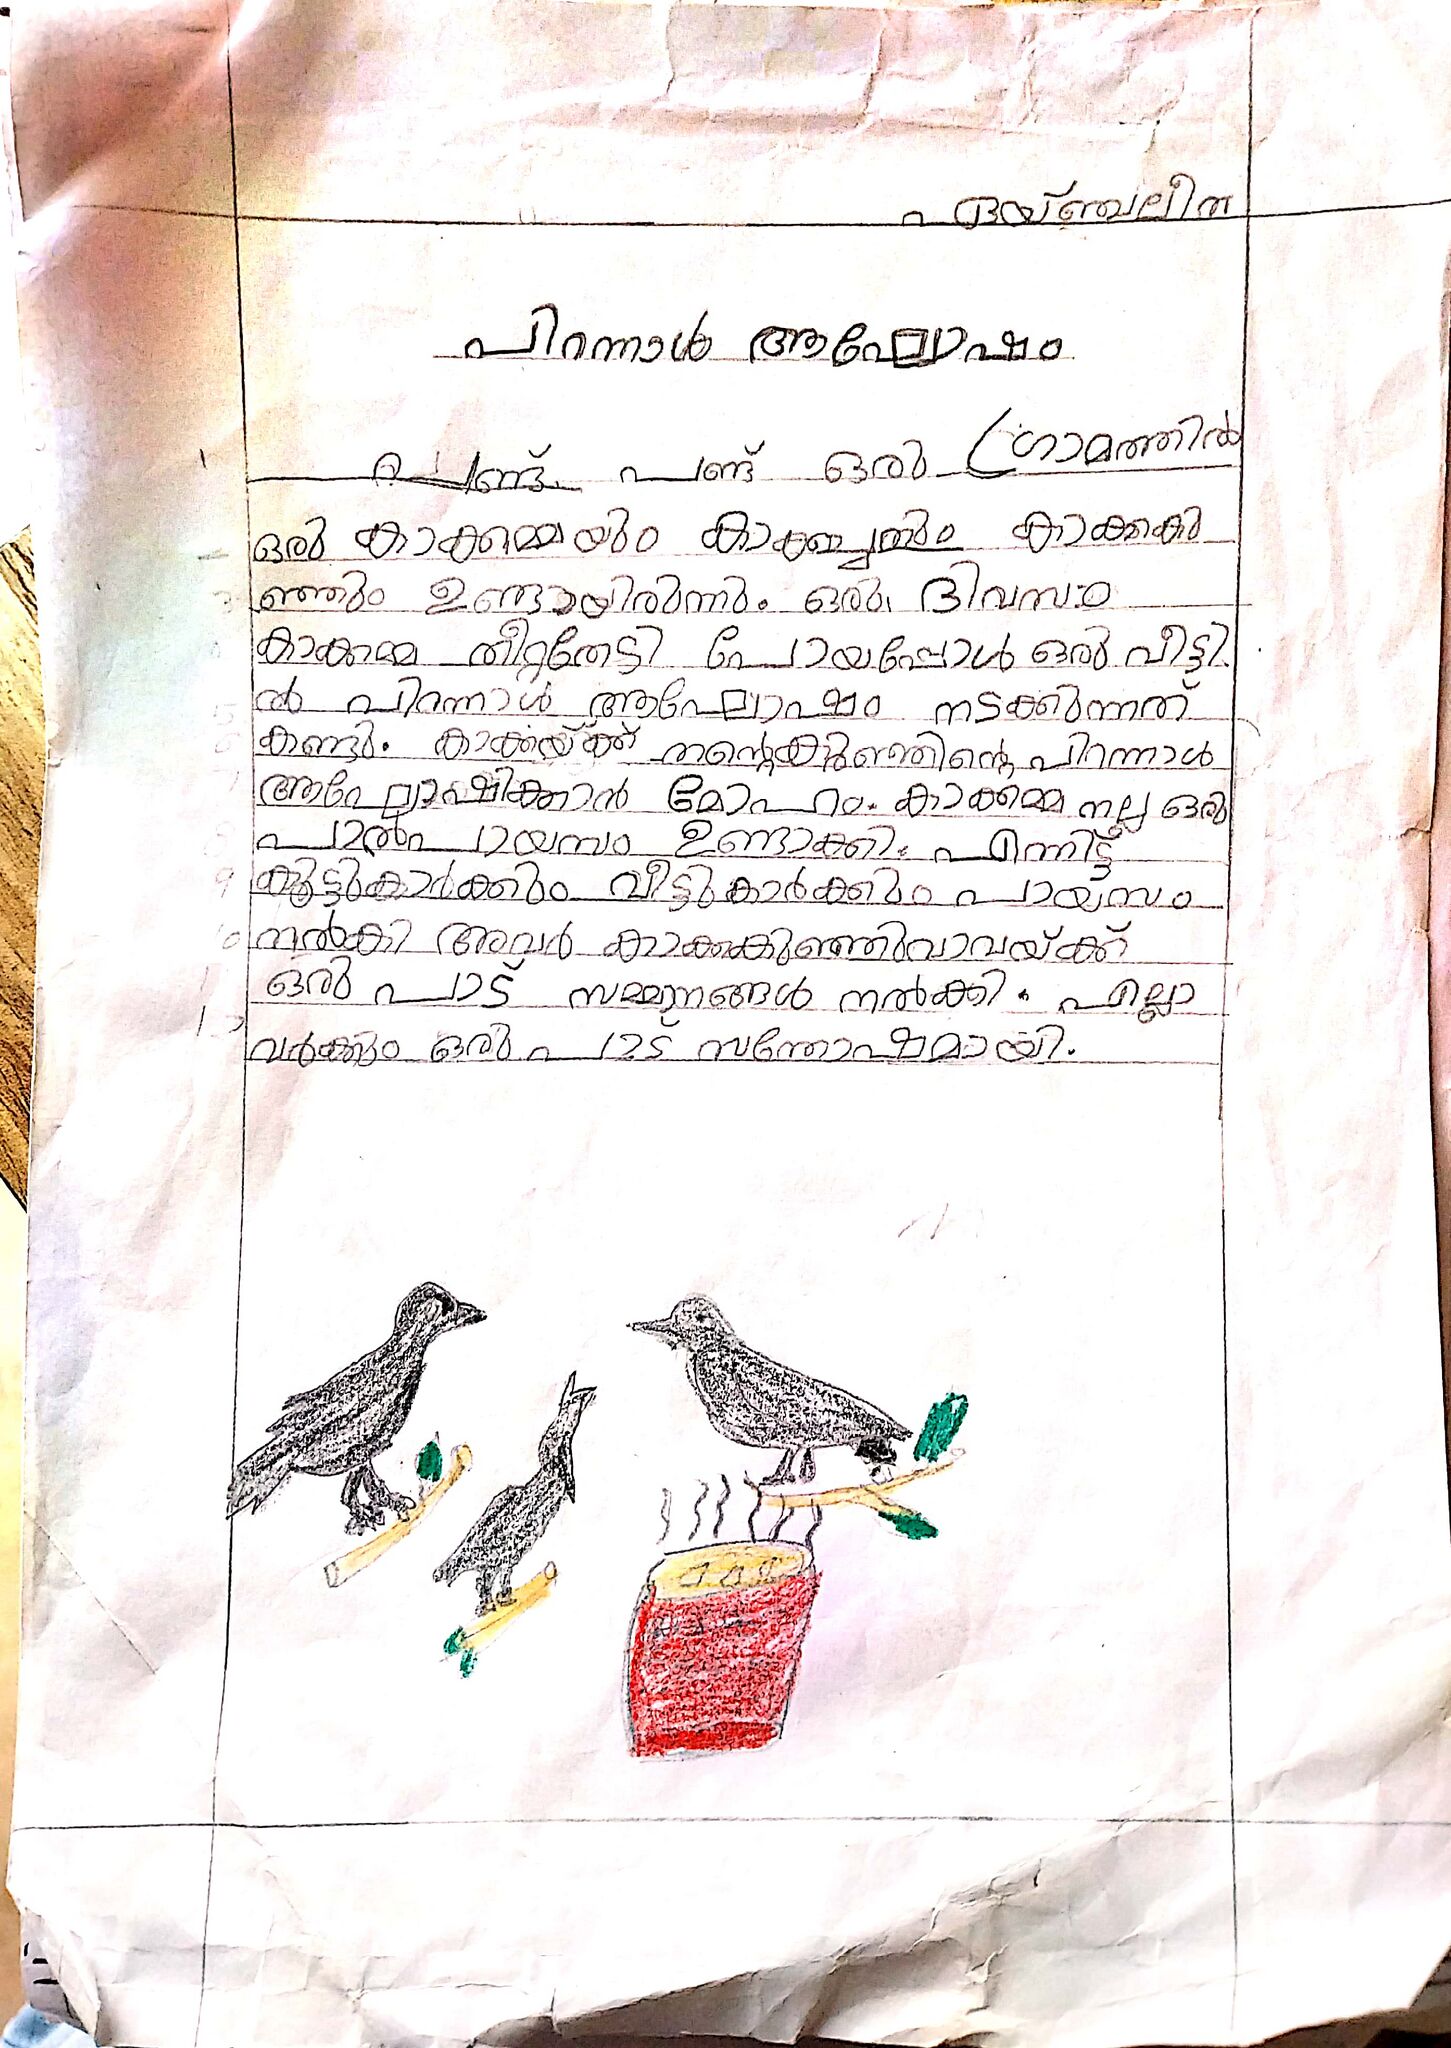 ഏയ്ഞ്ചലീന
പിറന്നാൾ ആഘോഷം
പണ്ട് പണ്ട് ഒരു ഗ്രാമത്തിൽ
ഒരു കാക്കമ്മെയും കാക്കച്ചനും കാക്കകു
ഞ്ഞും ഉണ്ടായിരുന്നു. ഒരു ദിവസം
കാക്കമ്മെ തീറ്റതേടി പോയപ്പോൾ ഒരു വീട്ടി
ൽ പിറന്നാൾ ആഘോഷം നടക്കുന്നത്
കണ്ടു. കാക്കയ്ക്ക് തന്റെകുഞ്ഞിന്റെ പിറന്നാൾ
ആഘോഷിക്കാൻ മോഹം. കാക്കമ്മെ നല്ല ഒരു
പാൽപായസം ഉണ്ടാക്കി. എന്നിട്ട്
കൂട്ടുകാർക്കും വീട്ടുകാർക്കും പായസം
നൽകി അവർ കാക്കകുഞ്ഞിവാവയ്ക്ക്
ഒരു പാട് സമ്മാനങ്ങൾ നൽക്കി. എല്ലാ
വർക്കും ഒരു പാട് സന്തോഷമായി.